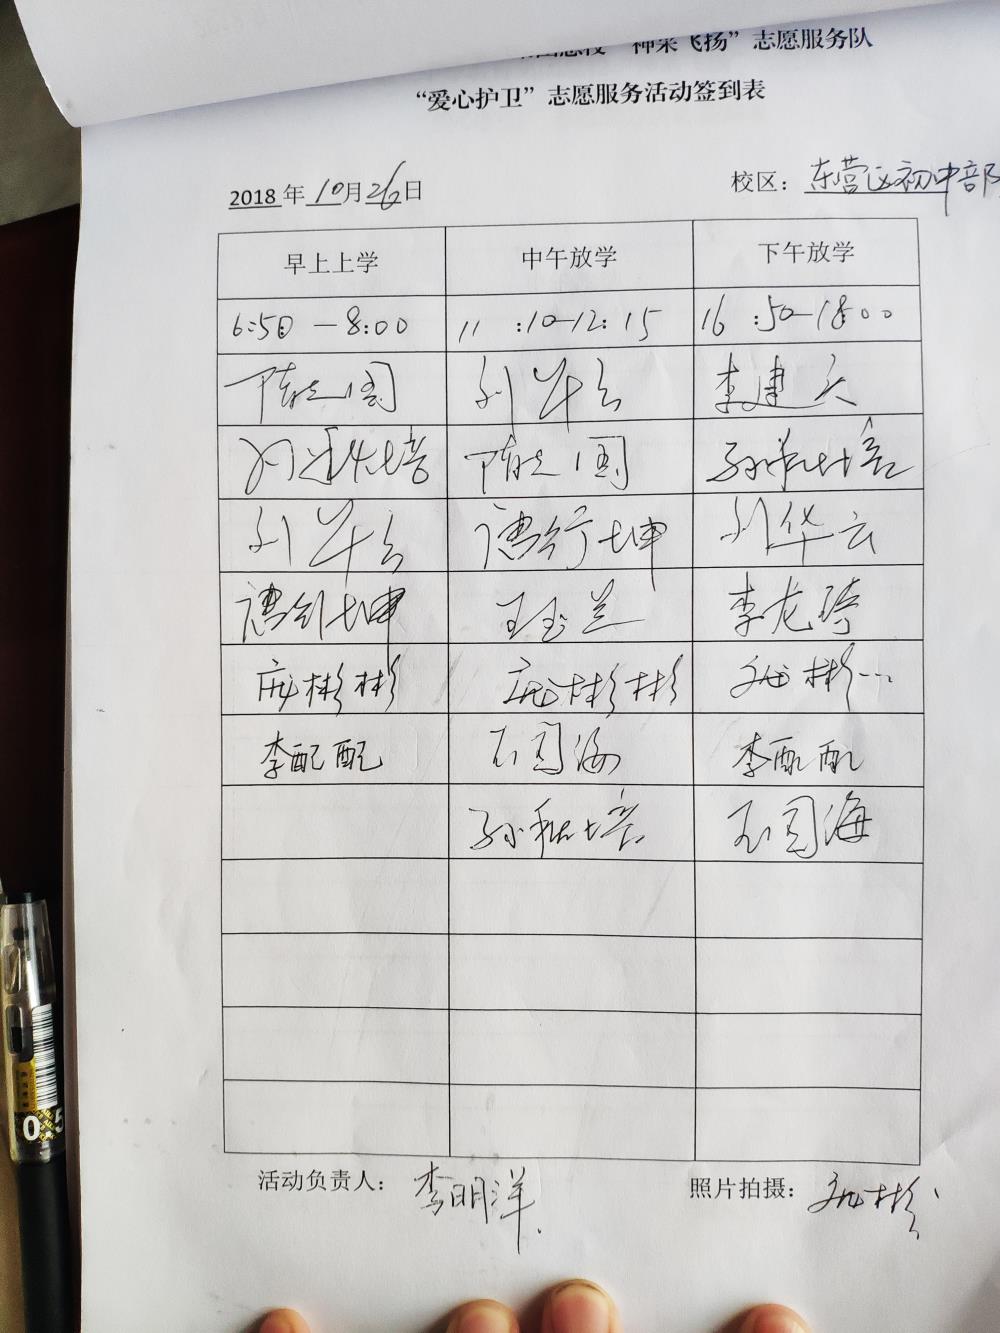 “神采飞扬”志愿服务队
“爱心护卫”志愿服务活动签到表
2018年10月26日 校区：东营区初中部
早上上学 中午放学 下午放学
6:50—8:00 11:10—12:15 16:50—18:00
隋志国 刘华云 李建文
培 隋志国 孙秋培
刘华云 唐行坤 刘华云
唐行坤 王玉兰 李龙琦
庞彬彬 庞彬彬 庞彬
李配配 石国海 李配配
孙秋培 石国海
活动负责人：李明洋 照片拍摄：庞彬彬
0.5